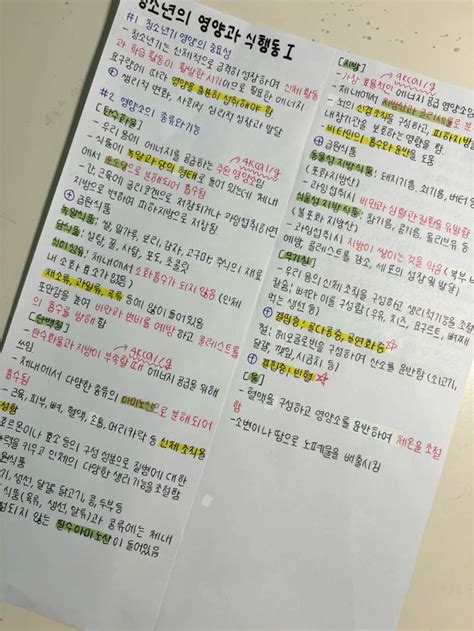 청소년의 영양과 식행동 I
#1 청소년기 영양의 중요성
- 청소년기는 신체적으로 급격히 성장하며 신체 활동
과 학습 활동이 활발한 시기이므로 필요한 에너지
요구량에 따라 영양을 충분히 섭취해야 함
⊕ 생리적 변화, 사회적, 심리적 성장과 발달
#2 영양소의 종류와 기능
[탄수화물]
4kcal/g
- 우리 몸에 에너지를 공급하는 주된 영양소임
식품에 녹말과 당의 형태로 들어 있는데 체내
에서 포도당으로 분해되어 흡수됨
- 간, 근육에 글리코겐으로 저장되거나 과잉섭취하면
지방으로 변하여 피하지방으로 저장됨
⊕ 급원식품
녹말식품: 쌀, 밀가루, 보리, 감자, 고구마
당식품: 설탕, 꿀, 사탕, 포도, 초콜릿
식이섬유: 체내에서 소화흡수가 되지 않음 (인체
내 소화효소가 없음)
채소류, 과일류, 콩류 등에 많이 들어있음
포만감을 높여 비만과 변비를 예방하고 콜레스테롤
의 흡수를 방해함
[단백질]
4kcal/g
- 탄수화물과 지방이 부족할 때 에너지 공급을 위해
쓰임
- 체내에서 다양한 종류의 아미노산으로 분해되어
흡수됨
- 근육, 피부, 뼈, 혈액, 효소, 머리카락 등 신체 조직을
호르몬이나 효소 등의 구성 성분으로 질병에 대한
키우고 인체의 다양한 생리 기능을 조절함
급원식품
생선, 달걀, 닭고기, 콩, 두부 등
식품(육류, 생선, 알류)과 콩류에는 체내
되지 않는 필수아미노산이 들어있음
[지방]
9kcal/g
- 가장 효율적인 에너지 공급 영양소임
- 체내에서 지방산과 글리세롤로 분해
- 뇌와 신경조직을 구성하고, 피하지방
내장기관을 보호하는 역할을 함
- 비타민의 흡수와 운반을 도움
⊕ 급원식품
동물성 지방식품: 돼지기름, 쇠기름, 버터 등
(포화지방산)
- 과잉섭취시 비만과 심혈관 질환을 유발함
식물성 지방식품: 참기름, 콩기름, 올리브유 등
(불포화 지방산)
- 과잉섭취시 지방이 쌓이는 것을 막음
예방, 콜레스테롤 감소, 세포의 성장 및 발달)
[무기질]
- 우리 몸의 신체 조직을 구성하고 생리적 기능을 조절
칼슘: 뼈와 이를 구성함 (우유, 치즈, 요구르트, 뼈째
먹는 생선 등)
⊕ 결핍증: 골다공증, 골연화증 ☆
철: 헤모글로빈을 구성하여 산소를 운반함 (쇠고기,
달걀, 깻잎, 시금치 등)
⊕ 결핍증: 빈혈 ☆
[물]
- 혈액을 구성하고 영양소를 운반하며 체온을 조절
함
- 소변이나 땀으로 노폐물을 배출시킴